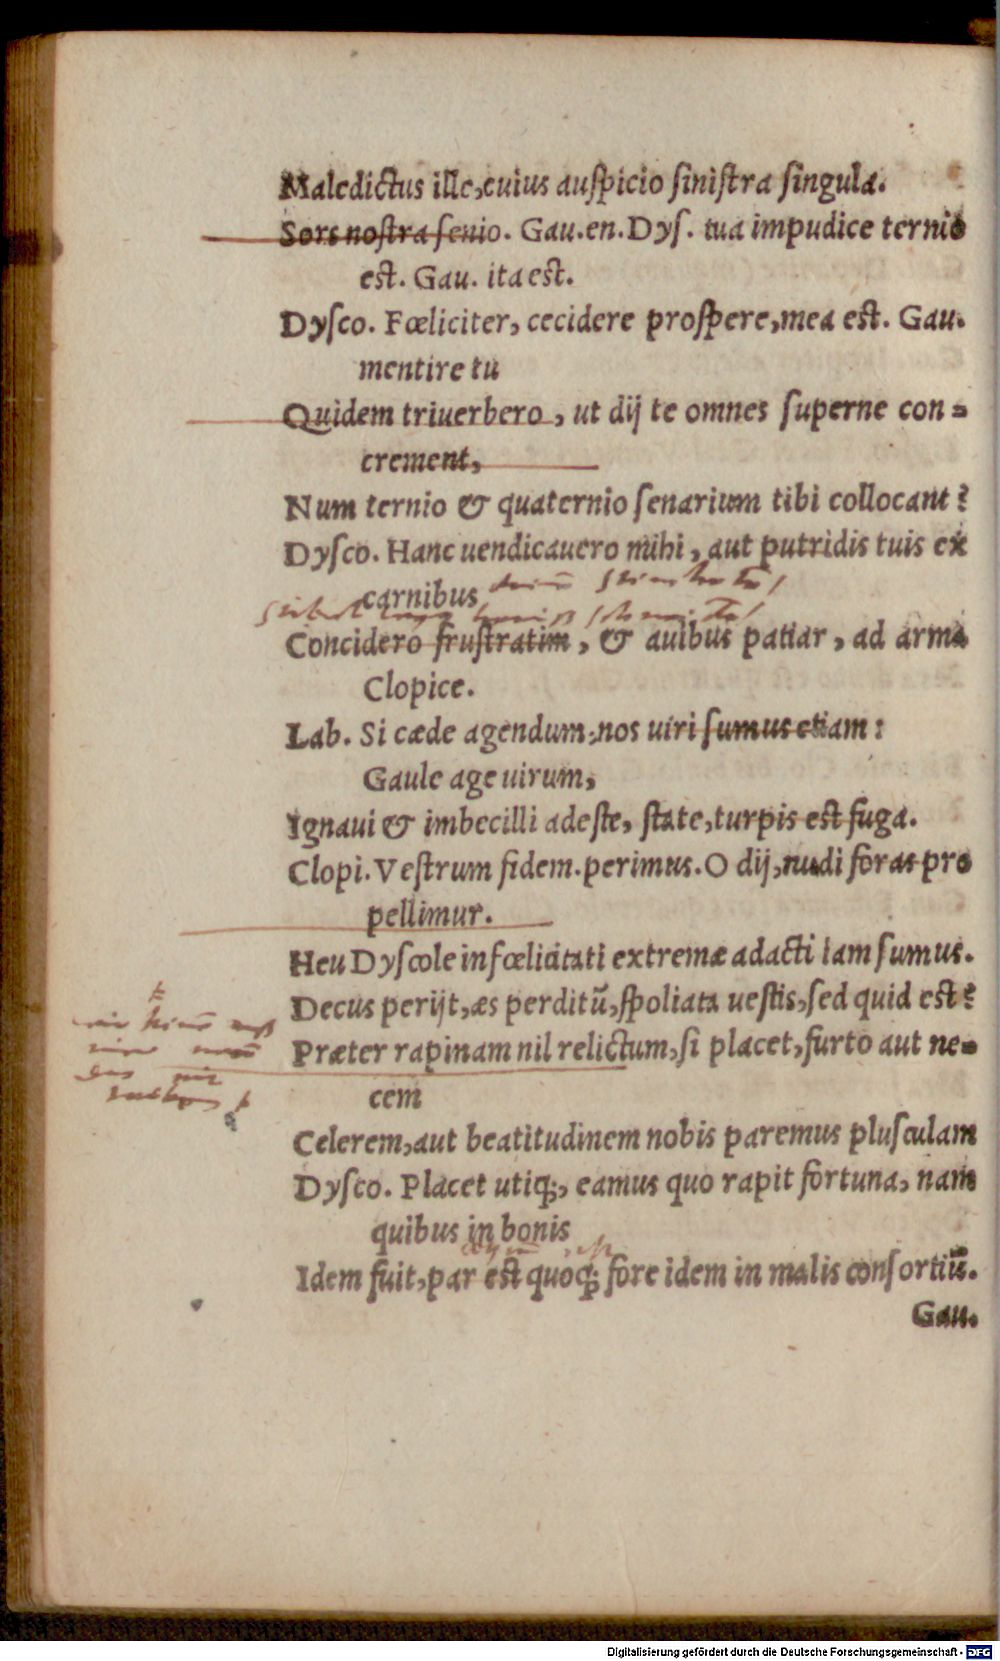 Maledictus ille, cuius auſpicio ſiniſtra ſingula.
Sors noſtra ſenio. Gau. en. Dyſ. tua impudice ternio
eſt. Gau. ita eſt.
Dyſco. Fœliciter, cecidere proſpere, mea eſt. Gau.
mentire tu
Quidem triuerbero, ut dij te omnes ſuperne con-
crement,
Num ternio & quaternio ſenarium tibi collocant?
Dyſco. Hanc uendicauero mihi, aut putridis tuis ex
carnibus
Concidero fruſtratim, & auibus patiar, ad arma
Clopice.
Lab. Si cæde agendum, nos uiri ſumus etiam:
Gaule age uirum,
Ignaui & imbecilli adeſte, ſtate, turpis eſt fuga.
Clopi. Veſtrum fidem. perimus. O dij, nudi foras pro
pellimur.
Heu Dyſcole infœlicitati extremæ adacti iam ſumus.
Decus perijt, æs perditũ, ſpoliata ueſtis, ſed quid eſt?
Præter rapinam nil relictum, ſi placet, furto aut ne-
cem
Celerem, aut beatitudinem nobis paremus pluſculam
Dyſco. Placet utiq;, eamus quo rapit fortuna, nam
quibus in bonis
Idem fuit, par eſt quoq; fore idem in malis conſortiũ.
Gau.
Digitalisierung gefördert durch die Deutsche Forschungsgemeinschaft - DFG